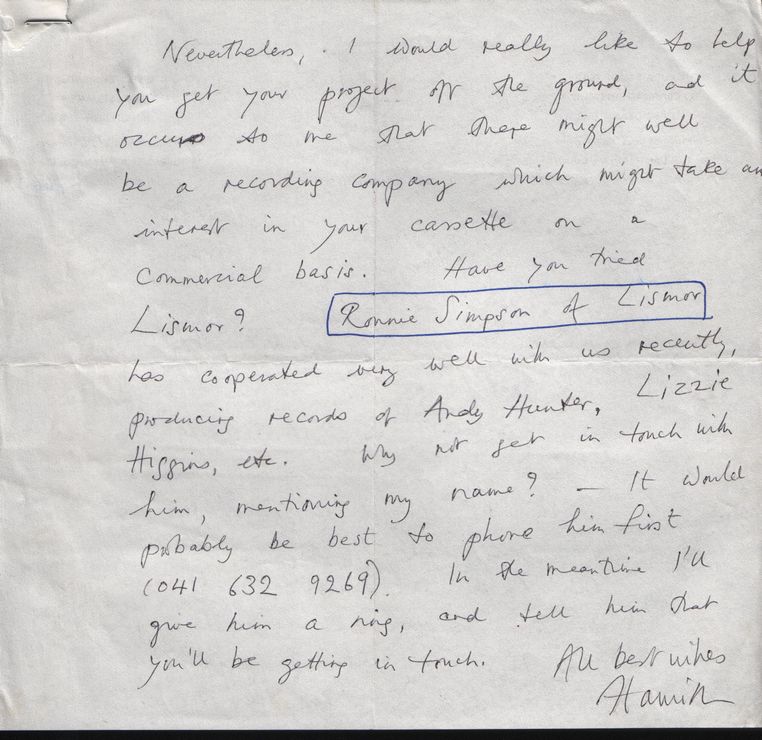 Nevertheless, I would really like to help
you get your project off the ground, and it
occurs to me that there might well
be a recording company which might take an
interest in your cassette on a
commercial basis. Have you tried
Lismor? Ronnie Simpson of Lismor
has cooperated very well with us recently,
producing records of Andy Hunter, Lizzie
Higgins, etc. Why not get in touch with
him, mentioning my name? — It would
probably be best to phone him first
(041 632 9269). In the meantime I'll
give him a ring, and tell him that
you'll be getting in touch. All best wishes
Hamish